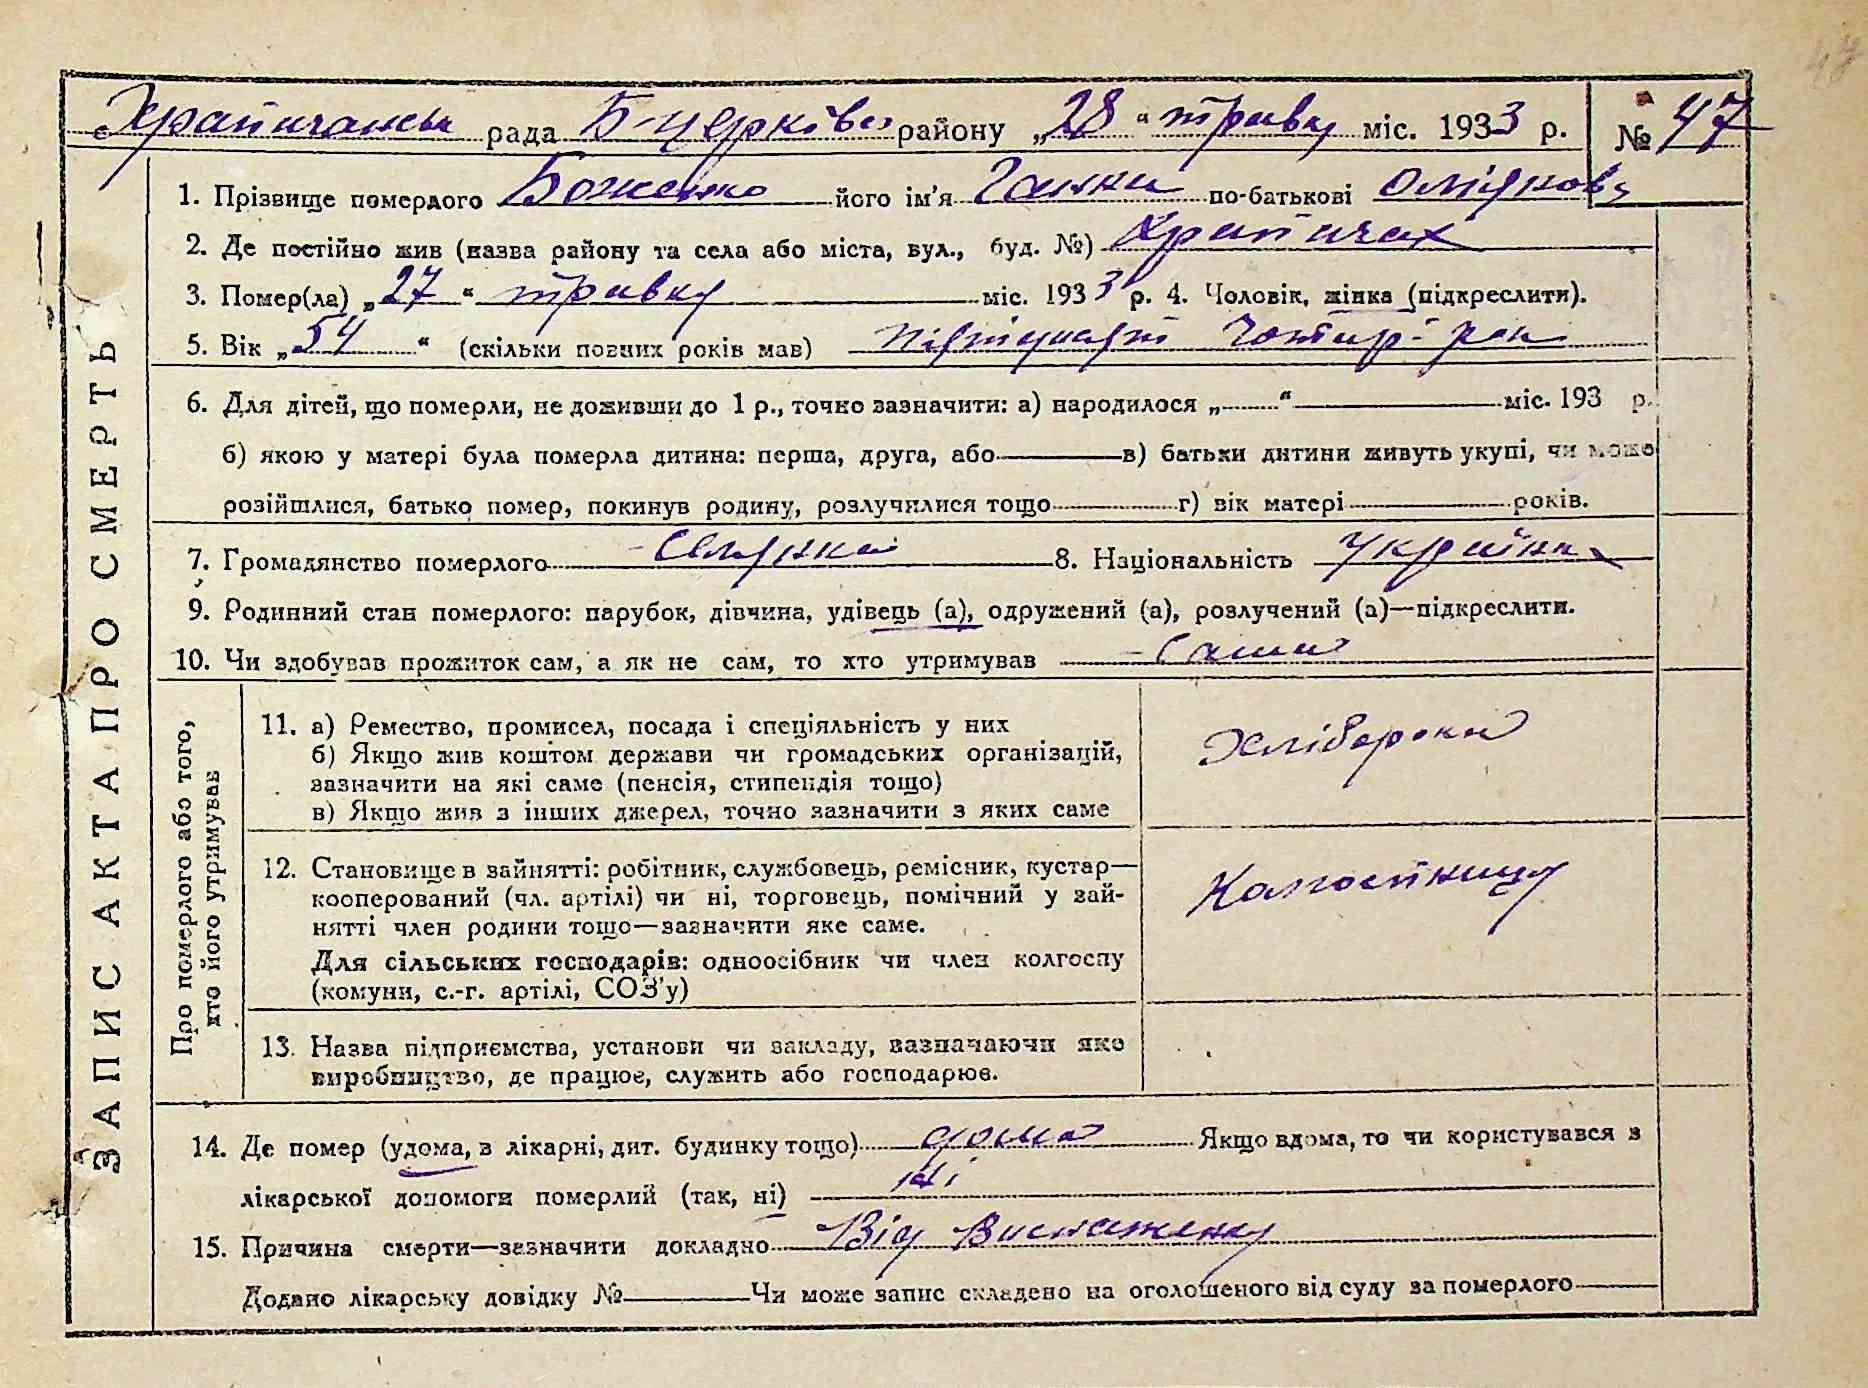 Храпачанськ рада Б-церківс району „28“ травня міс. 1933 р. № 47
ЗАПИС АКТА ПРО СМЕРТЬ
1. Прізвище померлого Боженко його ім'я Ганна по-батькові
2. Де постійно жив (назва району та села або міста, вул., буд. №) Храпачах
3. Помер(ла) „27“ травня міс. 1933 р. 4. Чоловік, жінка (підкреслити).
5. Вік „54“ (скільки повних років мав) чотир рок
6. Для дітей, що померли, не доживши до 1 р., точно зазначити: а) народилося „ “ міс. 193 р.
б) якою у матері була померла дитина: перша, друга, або в) батьки дитини живуть укупі, чи може
розійшлися, батько помер, покинув родину, розлучилися тощо г) вік матері років.
7. Громадянство померлого 8. Національність Українка
9. Родинний стан померлого: парубок, дівчина, удівець (а), одружений (а), розлучений (а)—підкреслити.
10. Чи здобував прожиток сам, а як не сам, то хто утримував Сама
Про померлого або того, хто його утримував
11. а) Ремество, промисел, посада і спеціяльність у них
б) Якщо жив коштом держави чи громадських організацій,
зазначити на які саме (пенсія, стипендія тощо)
в) Якщо жив з інших джерел, точно зазначити з яких саме
Хліборобка
12. Становище в зайнятті: робітник, службовець, ремісник, кустар—
кооперований (чл. артілі) чи ні, торговець, помічний у зай-
нятті член родини тощо—зазначити яке саме.
Для сільських господарів: одноосібник чи член колгоспу
(комуни, с.-г. артілі, СОЗ'у)
13. Назва підприємства, установи чи закладу, зазначаючи яке
виробництво, де працює, служить або господарює.
14. Де помер (удома, в лікарні, дит. будинку тощо) дома Якщо вдома, то чи користувався з
лікарської допомоги померлий (так, ні) Ні
15. Причина смерти—зазначити докладно Від Виснаження
Додано лікарську довідку № Чи може запис складено на оголошеного від суду за померлого